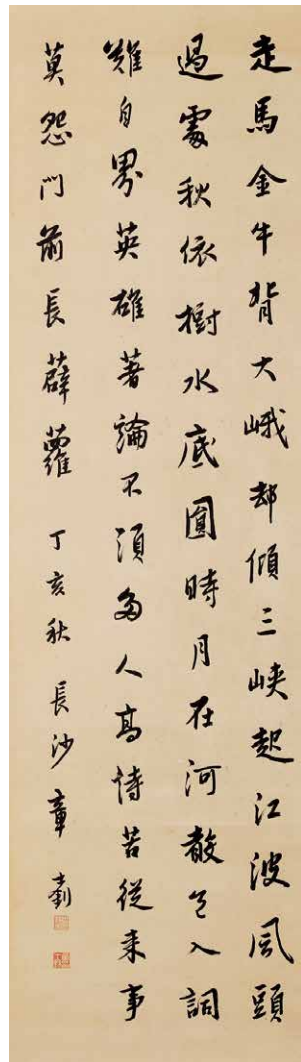 走馬金牛背大峨却傾三峽起江波風頭
過處秋依樹水底圓時月在河散入詞
難自英雄著論不須多人高詩苦從來事
莫怨門前長薜蘿 丁亥秋 長沙章士釗